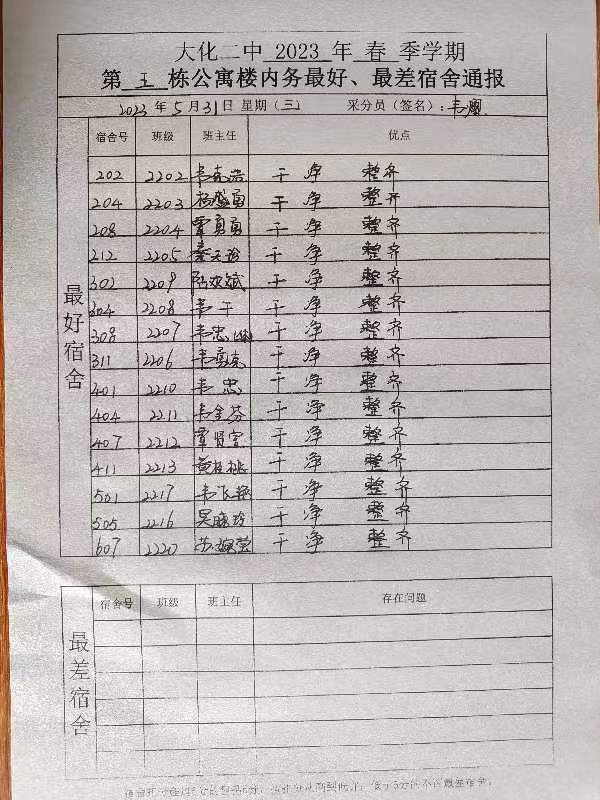 大化二中 2023 年 春 季学期
第 五 栋公寓楼内务最好、最差宿舍通报
2023 年 5 月 31 日 星期(三) 采分员(签名):韦
宿舍号 班级 班主任 优点
最好宿舍
202 2202 韦 浩 干净 整齐
204 2203 杨盛勇 干净 整齐
208 2204 覃勇勇 干净 整齐
212 2205 秦 干净 整齐
302 2209 陆欢斌 干净 整齐
304 2208 韦干 干净 整齐
308 2207 韦忠 干净 整齐
311 2206 韦 干净 整齐
401 2210 韦忠 干净 整齐
404 2211 韦金芬 干净 整齐
407 2212 覃贤宫 干净 整齐
411 2213 黄桂桃 干净 整齐
501 2217 韦飞艳 干净 整齐
505 2216 吴晓玲 干净 整齐
607 2220 苏 莹 干净 整齐
宿舍号 班级 班主任 存在问题
最差宿舍